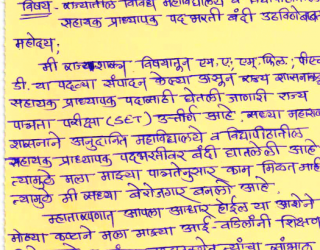 विषय - राज्यातील विविध महाविद्यालय व विद्यापीठातील
सहायक प्राध्यापक पद भरती बंदी उठविणेबाबत
महोदय;
मी राज्यशास्त्र विषयातून एम.ए; एम.फिल; पीएच
डी. या पदव्या संपादन केल्या असून राज्य शासनाकडून
सहायक प्राध्यापक पदासाठी घेतली जाणारी राज्य
पात्रता परीक्षा (SET) उत्तीर्ण आहे. सध्या महाराष्ट्र
शासनाने अनुदानित महाविद्यालये व विद्यापीठातील
सहायक प्राध्यापक पदभरतीवर बंदी घातलेली आहे
त्यामुळे मला माझ्या पात्रतेनुसार काम मिळत नाही
त्यामुळे मी सध्या बेरोजगार बनलो आहे.
म्हातारपणात आपला आधार होईल या आशेने
मोठ्या कष्टाने मला माझ्या आई-वडिलांनी शिक्षण
त्यांचा